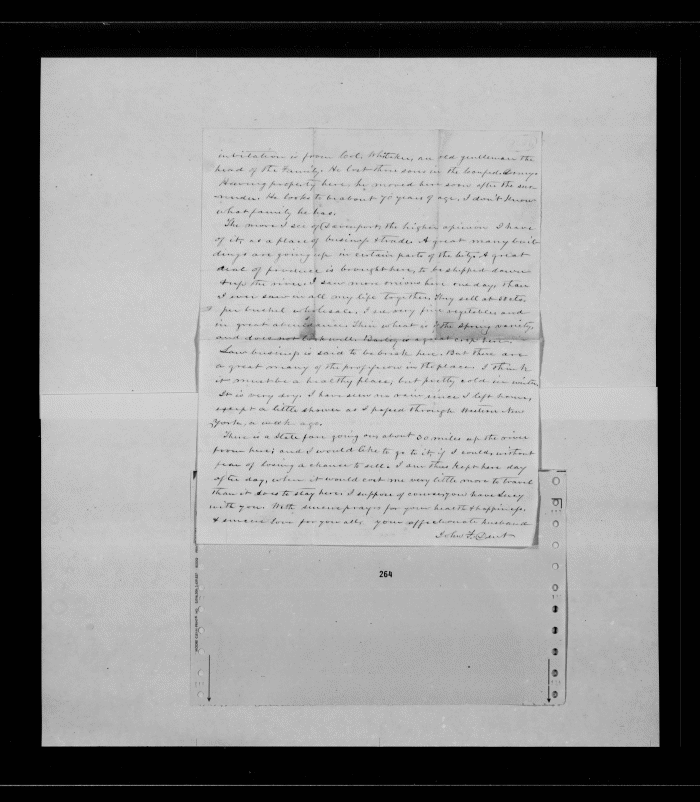 invitation is from Col. Whitaker, an old gentleman the
head of the Family. He lost three sons in the Confed. Army.
Having property here he moved here soon after the sur-
render. He looks to be about 70 years of age, I don't know
what family he has.
The more I see of Davenport, the higher opinion I have
of it, as a place of business & trade. A great many buil-
dings are going up in certain parts of the City. A great
deal of produce is brought here, to be shipped down
& up the river. I saw more onions here one day, than
I ever saw in all my life together. They sell at
per bushel wholesale. I see very fine vegetables and
in great abundance. Their wheat is of the Spring variety,
and does not look well. Barley is a great crop here.
Law business is said to be brisk here. But there are
a great many of the profession in the place. I think
it must be a healthy place, but pretty cold in winter.
It is very dry. I have seen no rain since I left home,
except a little shower as I passed through Western New
York, a week ago.
There is a State fair going on, about 30 miles up the river
from here; and I would like to go to it, if I could, without
fear of losing a chance to sell. I am thus kept here day
after day, when it would cost me very little more to travel
than it does to stay here. I suppose of course, you have Lucy
with you. With sincere prayer for your health & happiness,
& sincere love for you all, your affectionate husband
John F. Dent
264